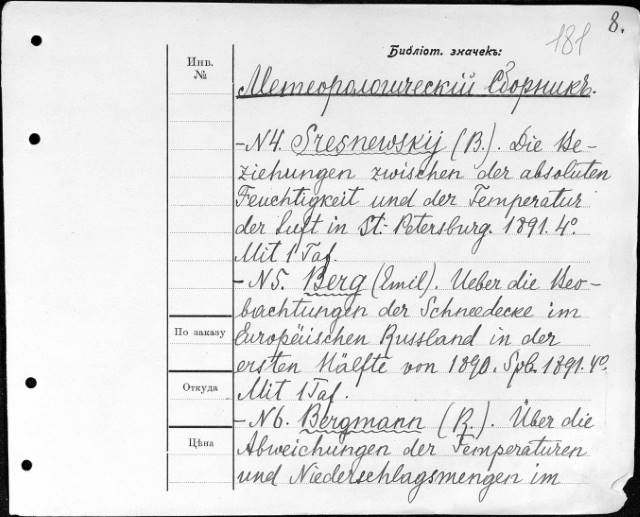 8.
181
Библіот. значекъ:
Инв.
№
Метеорологическій Сборникъ.
-N4. Sresnewskij (B.). Die Be-
ziehungen zwischen der absoluten
Feuchtigkeit und der Temperatur
der Luft in St.-Petersburg. 1891. 4°.
Mit 1 Taf.
-N5. Berg (Emil). Ueber die Beo-
bachtungen der Schneedecke im
По заказу
Europëischen Russland in der
ersten Hälfte von 1890. Spb. 1891. 4°.
Откуда
Mit 1 Taf.
-N6. Bergmann (R.). Über die
Цѣна
Abweichungen der Temperaturen
und Niederschlagsmengen im